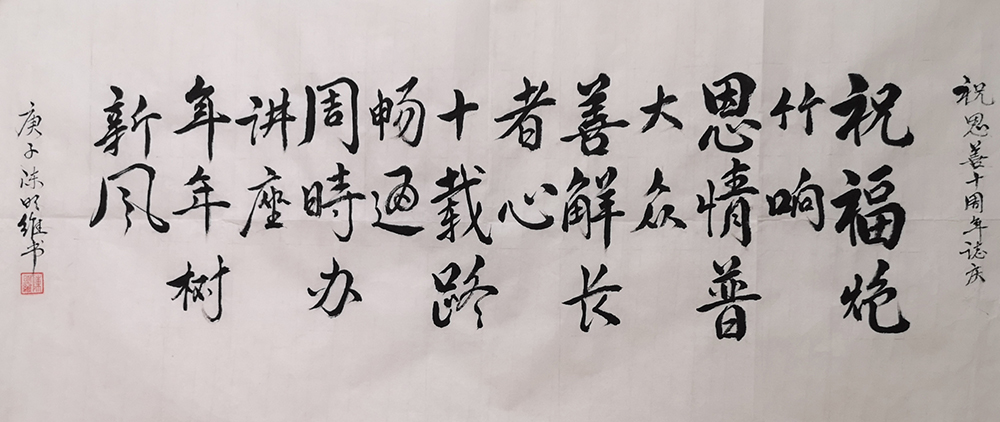 祝恩善十周年誌庆
祝福炮
竹响
恩情普
大众
善解长
者心
十载路
畅通
周時办
讲座
年年树
新风
庚子陈明维书